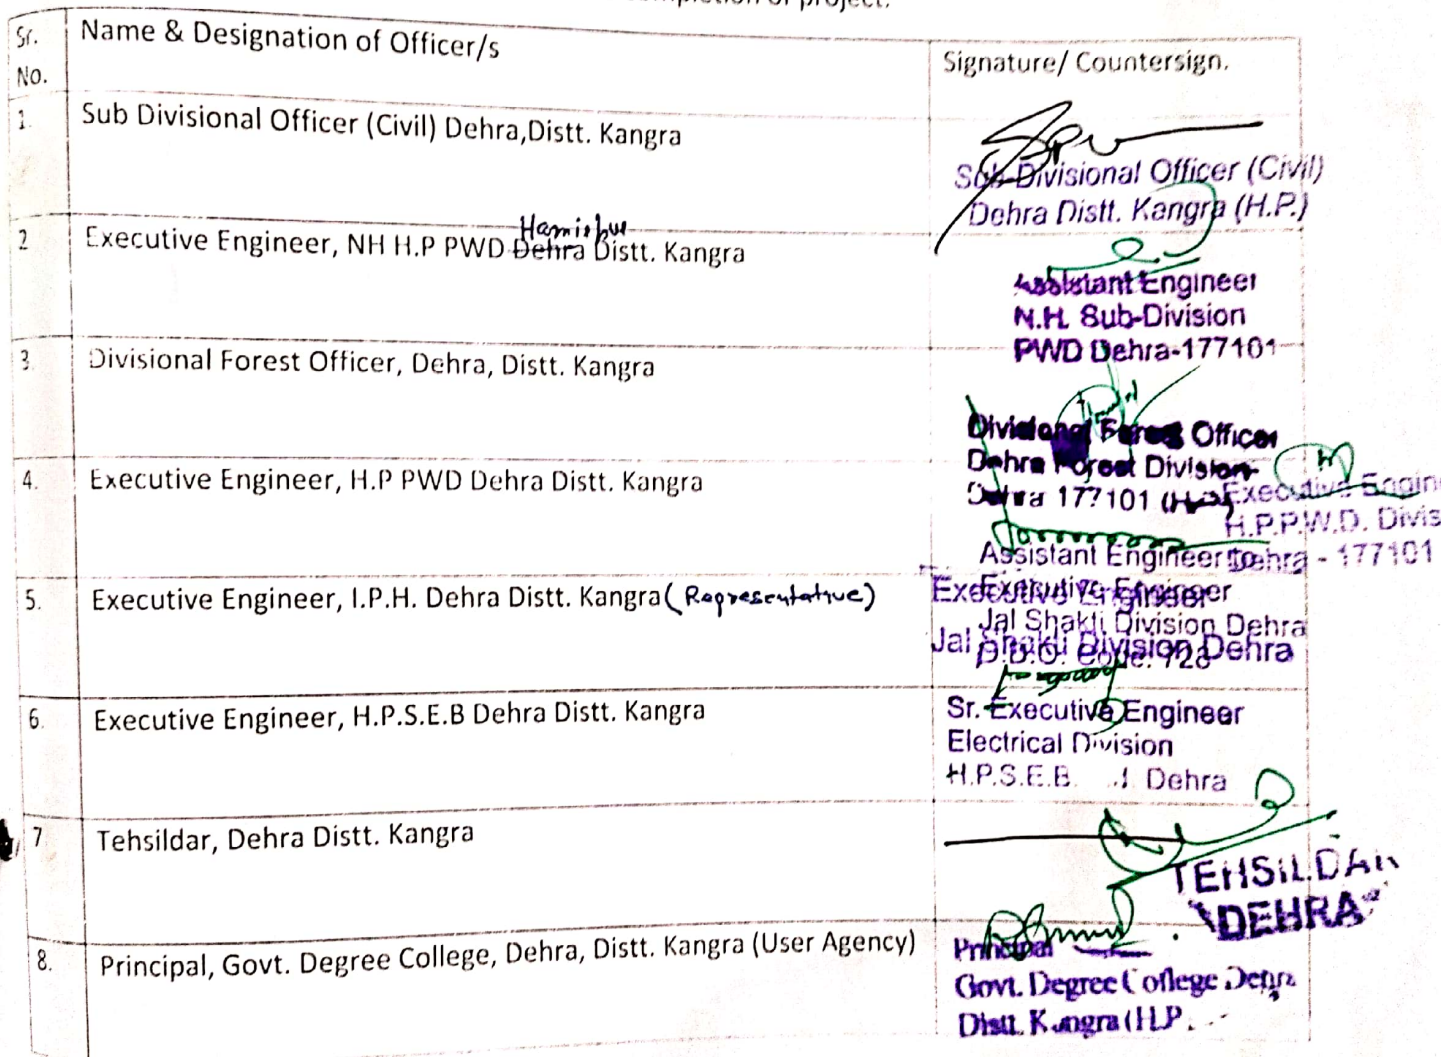 project.
Sr. No.
Name & Designation of Officer/s
Signature/ Countersign.
1.
Sub Divisional Officer (Civil) Dehra,Distt. Kangra
Sub-Divisional Officer (Civil)
Dehra Distt. Kangra (H.P.)
Hamirpur
2
Executive Engineer, NH H.P PWD Dehra Distt. Kangra
Assistant Engineer
N.H. Sub-Division
PWD Dehra-177101
3.
Divisional Forest Officer, Dehra, Distt. Kangra
Divisional Forest Officer
Dehra Forest Division
Dehra 177101
4.
Executive Engineer, H.P PWD Dehra Distt. Kangra
Executive Engin
H.P.P.W.D. Divis
Dehra - 177101
Assistant Engineer
5.
Executive Engineer, I.P.H. Dehra Distt. Kangra (Representative)
Executive Engineer
Jal Shakti Division Dehra
Executive Engineer
Jal Shakti Division Dehra
D.D.O. Code: 728
6.
Executive Engineer, H.P.S.E.B Dehra Distt. Kangra
Sr. Executive Engineer
Electrical Division
H.P.S.E.B. Dehra
7
Tehsildar, Dehra Distt. Kangra
TEHSILDAR
DEHRA
8.
Principal, Govt. Degree College, Dehra, Distt. Kangra (User Agency)
Principal
Govt. Degree College Dehra
Distt. Kangra (H.P.